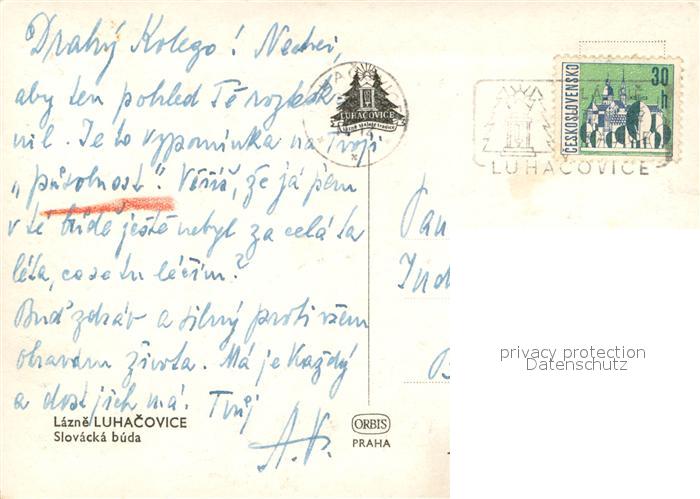 Drahý Kolego! Nechci,
aby ten pohled Tě rozesk-
nil. Je to vypomínka na Tvoji
„ ". Věříš, že já jsem
v té búdě ještě nebyl za celá ta
léta, co se tu léčím?
Buď zdráv a silný proti všem
obavám života. Má je Každý
a dost jich má. Tvůj
A.
Lázně LUHAČOVICE
Slovácká búda
ORBIS
PRAHA
LUHAČOVICE
LUHAČOVICE
ČESKOSLOVENSKO
30
h
Pan
privacy protection
Datenschutz